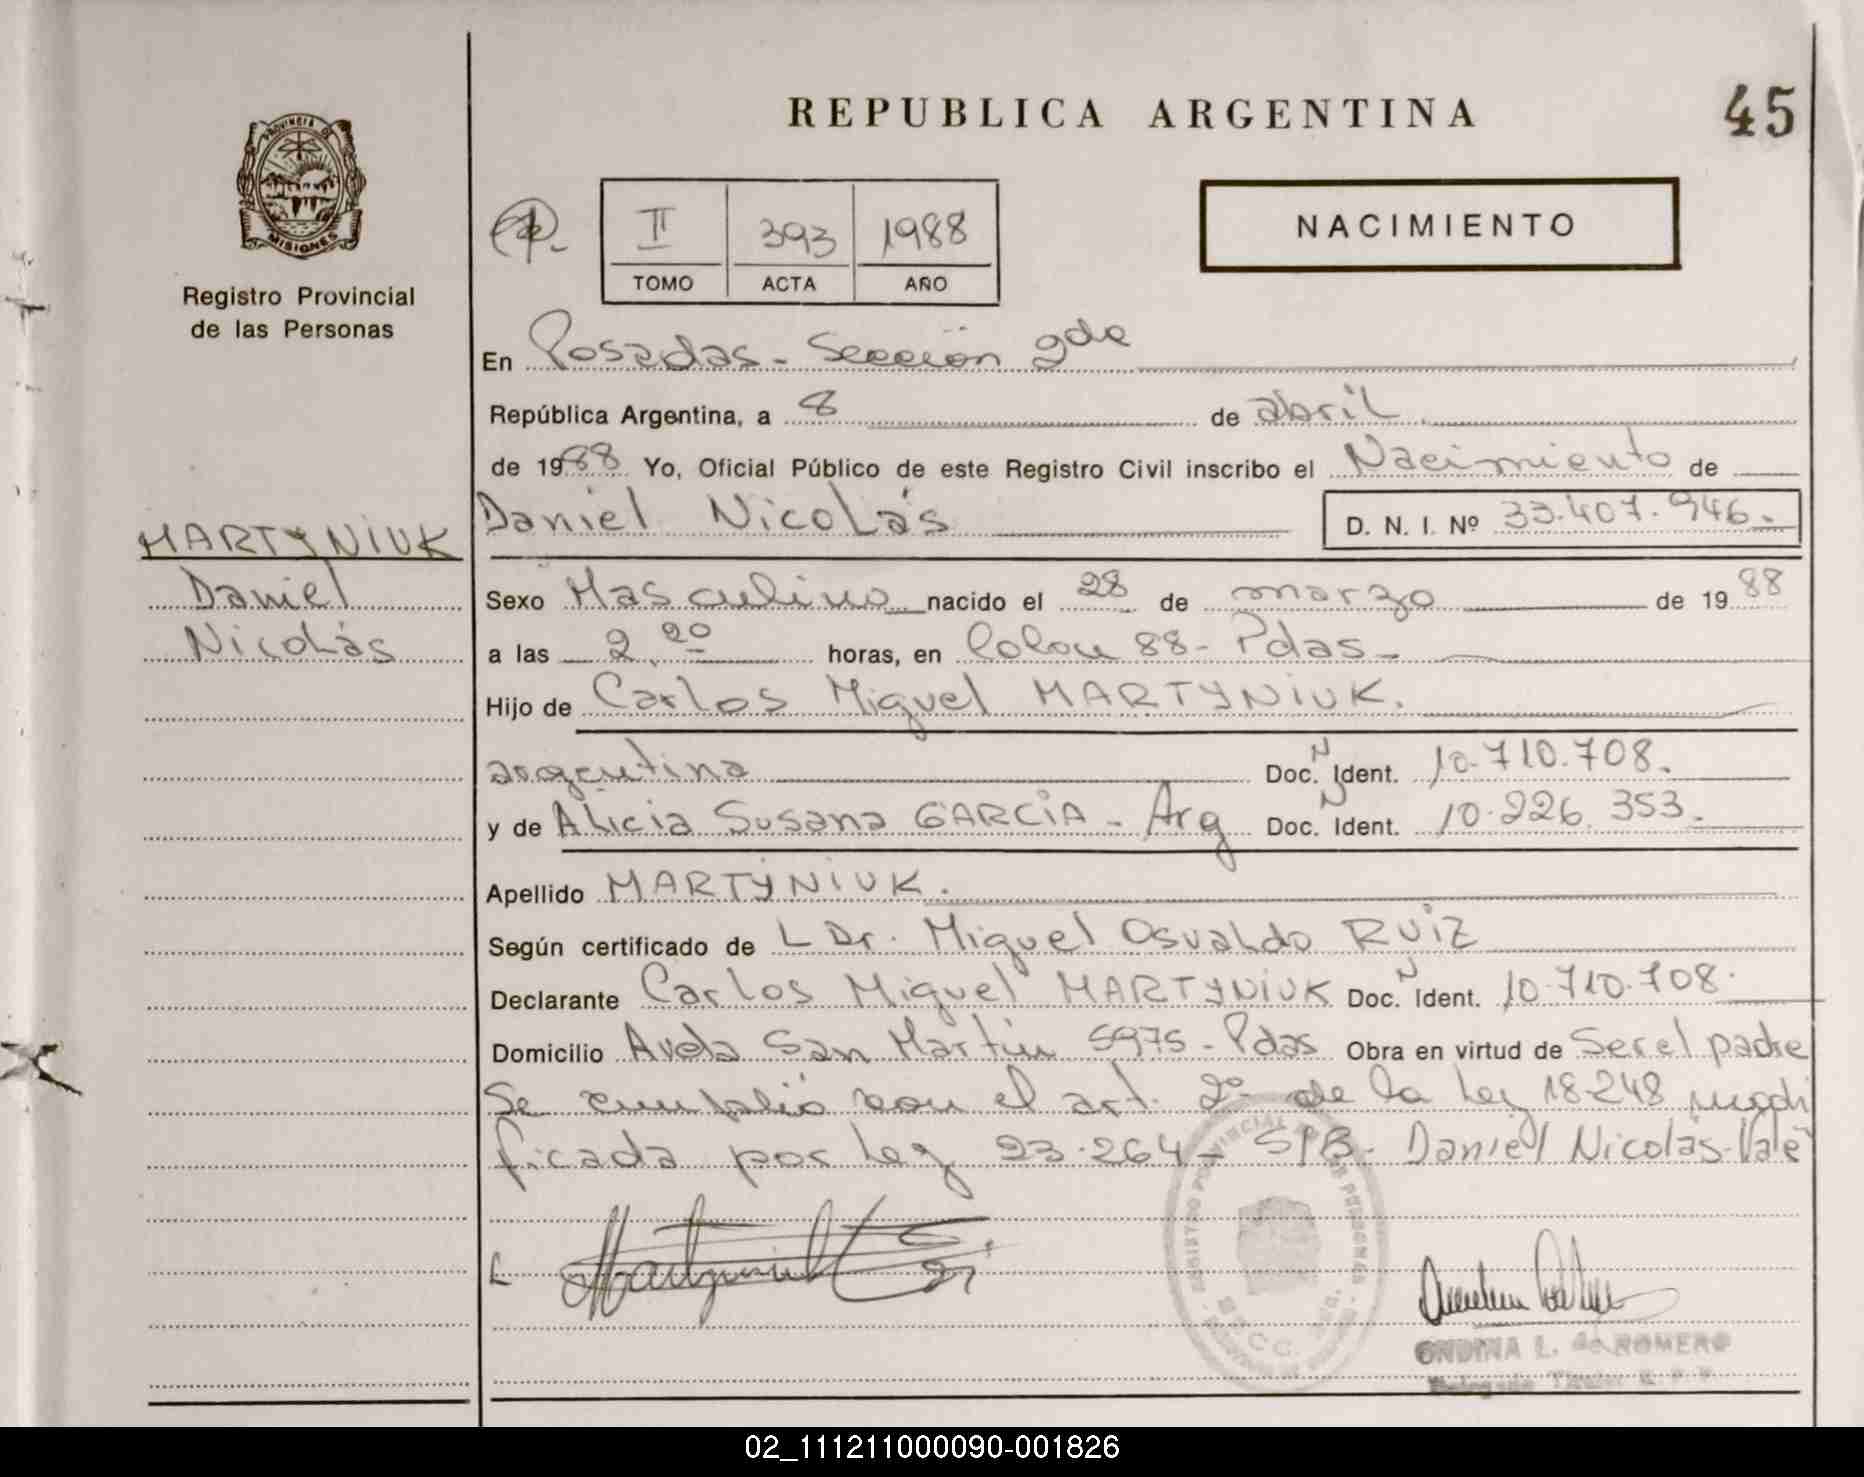 REPUBLICA ARGENTINA
45
PROVINCIA DE
MISIONES
Registro Provincial
de las Personas
II 393 1988
TOMO ACTA AÑO
NACIMIENTO
En Posadas - Sección 2da
República Argentina, a 8 de abril
de 1988 Yo, Oficial Público de este Registro Civil inscribo el Nacimiento de
Daniel Nicolás D. N. I. Nº 33.407.946.
MARTYNIUK
Daniel
Nicolás
Sexo Masculino nacido el 28 de marzo de 1988
a las 2.20 horas, en Colon 88 - Pdas -
Hijo de Carlos Miguel MARTYNIUK.
argentina Doc. N Ident. 10.710.708.
y de Alicia Susana GARCIA - Arg Doc. N Ident. 10.226.353.
Apellido MARTYNIUK.
Según certificado de L Dr. Miguel Osvaldo RUIZ
Declarante Carlos Miguel MARTYNIUK Doc. N Ident. 10.710.708.
Domicilio Avda San Martín 5975 - Pdas Obra en virtud de Ser el padre
Se cumplió con el art. 2º de la Ley 18.248 modi
ficada por Ley 23.264 - S/B - Daniel Nicolás - Vale
ONDINA L. de ROMERO
Delegada Titular R. P. P.
02_111211000090-001826